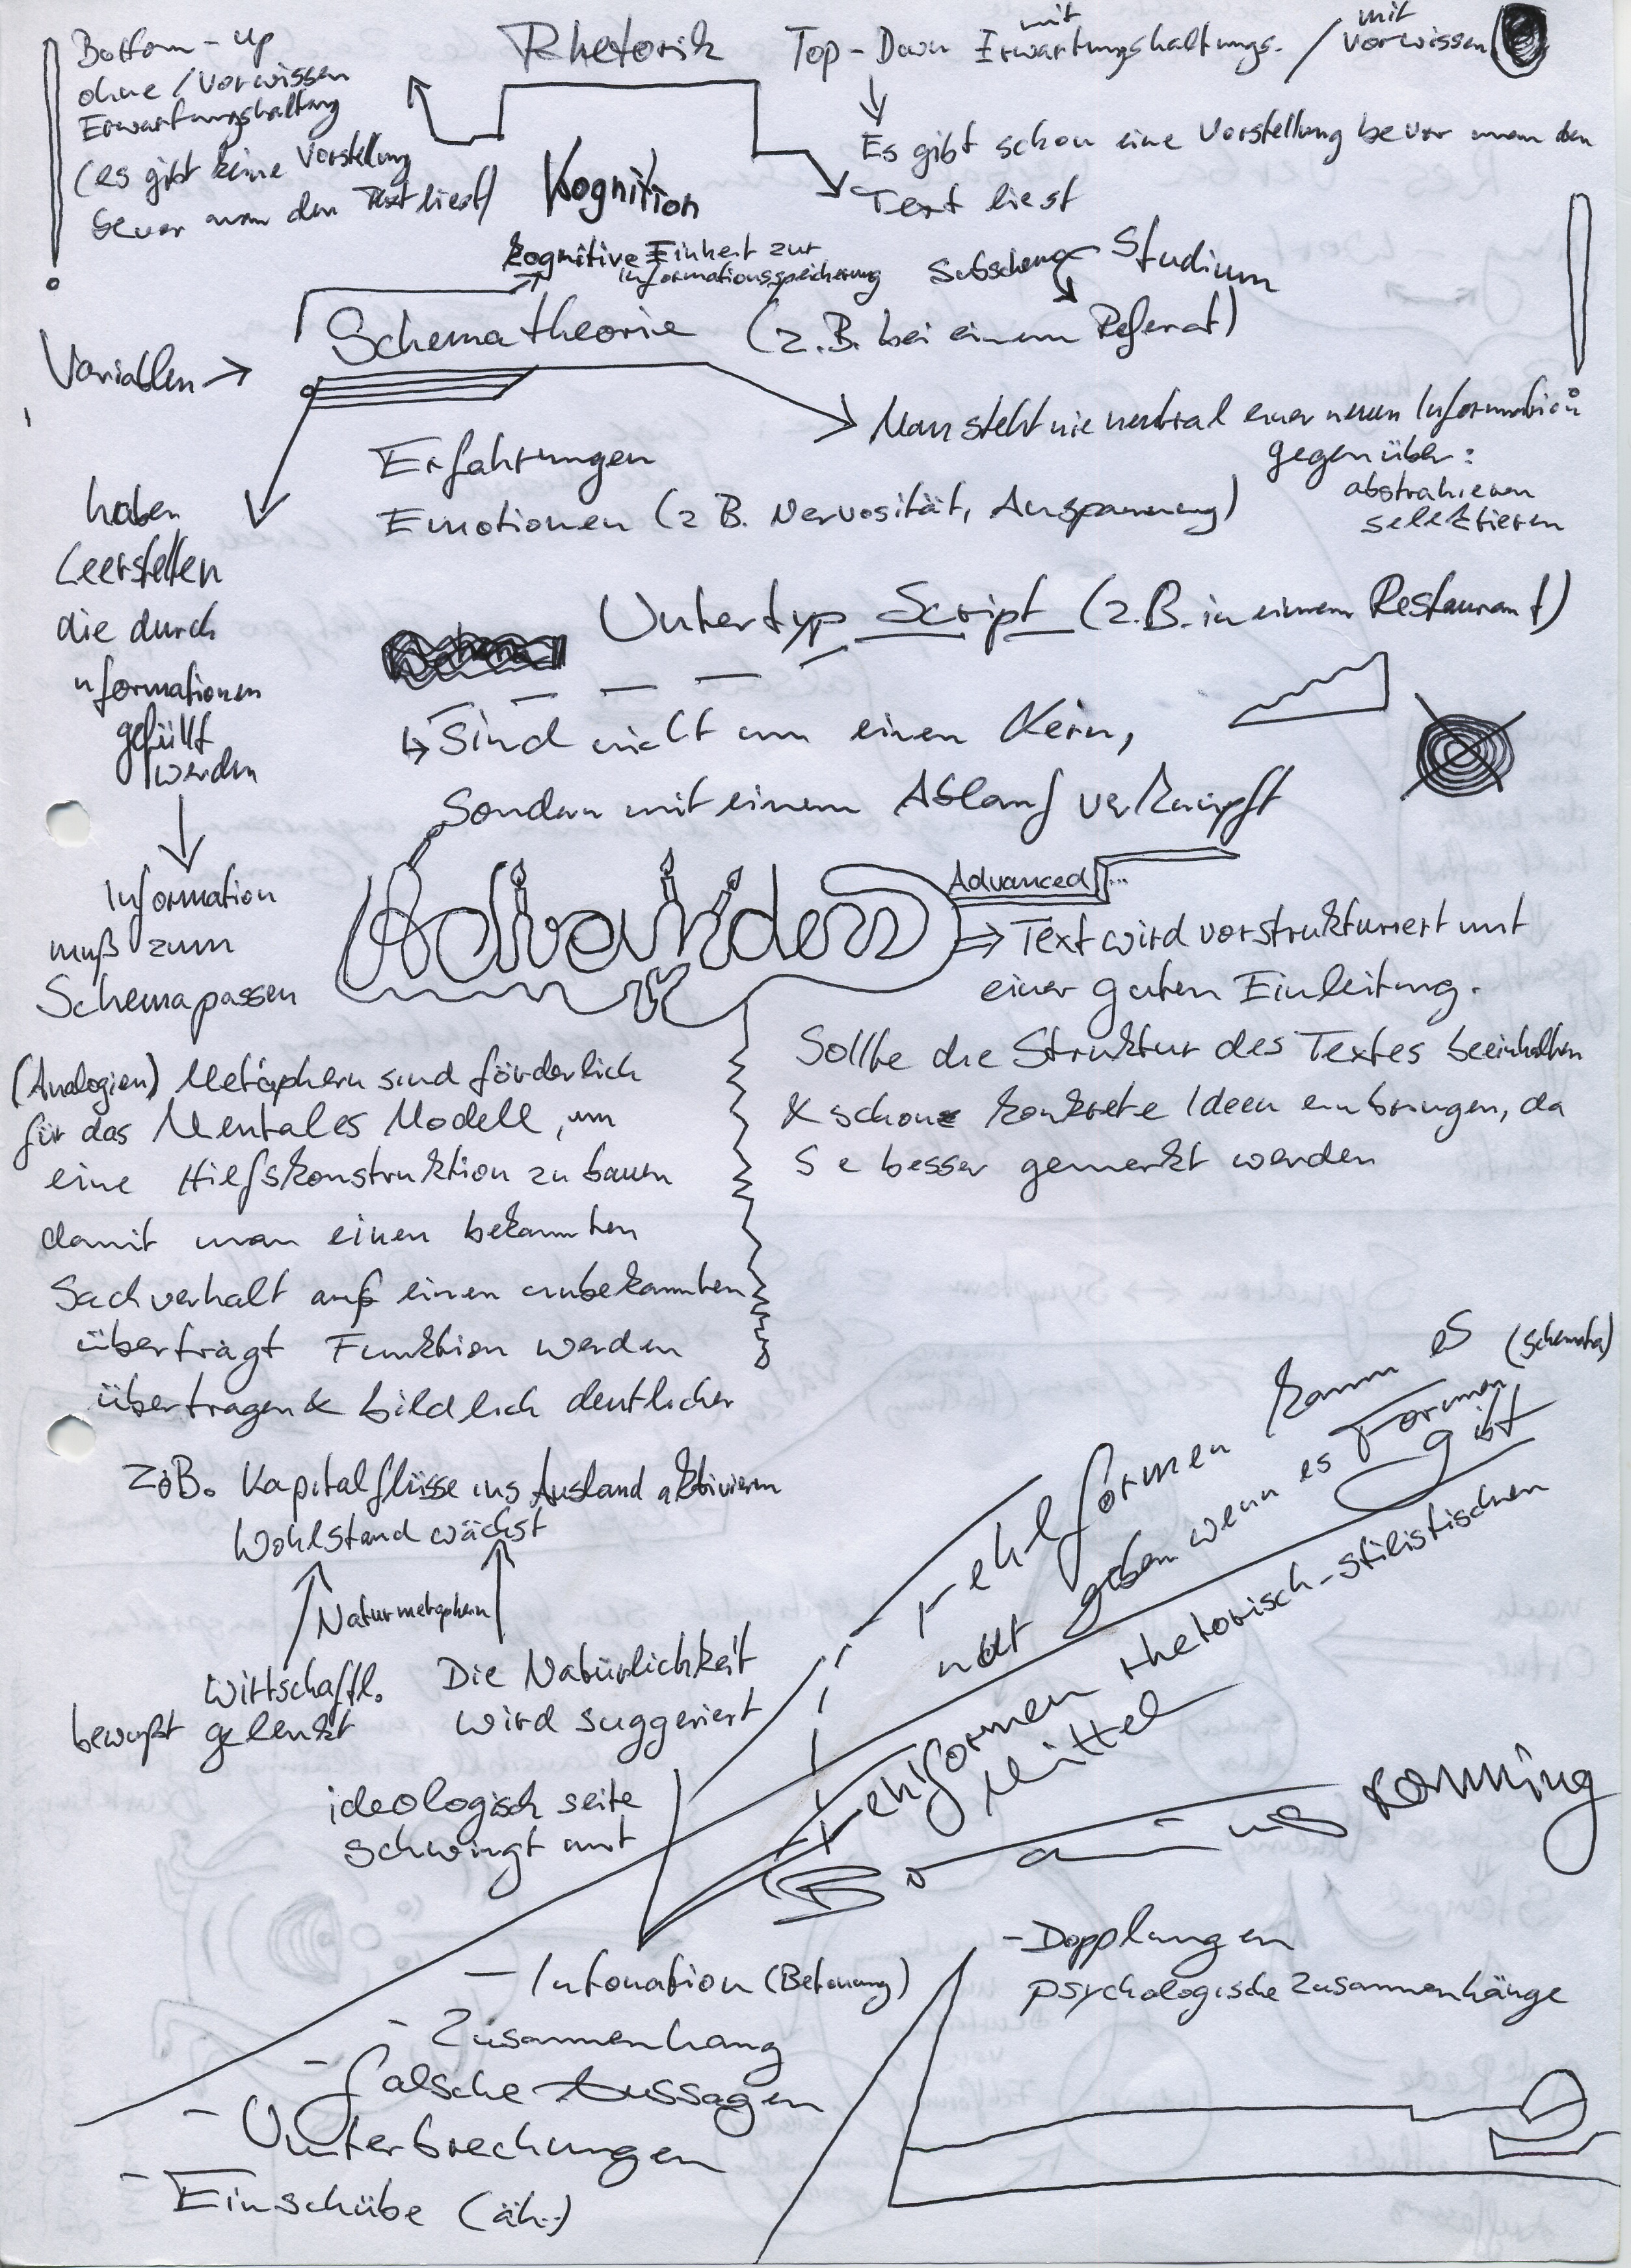 Rhetorik
Bottom-up
ohne / Vorwissen
Erwartungshaltung
(es gibt keine Vorstellung
bevor man den Text liest)
Top-Down mit Erwartungshaltungs. / mit Vorwissen
Es gibt schon eine Vorstellung bevor man den
Text liest
Kognition
kognitive Einheit zur
Informationsspeicherung
Subschema Studium
Schematheorie (z.B. bei einem Referat)
Variablen →
Man steht nie neutral einer neuen Information
gegenüber:
abstrahieren
selektieren
Erfahrungen
Emotionen (z B. Nervosität, Anspannung)
haben
Leerstellen
die durch
nformationen
gefüllt
werden
Information
muß zum
Schema passen
Untertyp Script (z.B. in einem Restaurant)
Sind nicht um einen Kern,
Sondern mit einem Ablauf verknüpft
Advanced...
⇒ Text wird vorstrukturiert mit
einer guten Einleitung.
Sollte die Struktur des Textes beeinhalten
& schon konkrete Ideen einbringen, da
S e besser gemerkt werden
(Analogien) Metaphern sind förderlich
für das Mentales Modell, um
eine Hilfskonstruktion zu bauen
damit man einen bekannten
Sachverhalt auf einen unbekannten
überträgt Funktion werden
übertragen & bildlich deutlicher
z.B. Kapitalflüsse ins Ausland aktivieren
Wohlstand wächst
Naturmetaphern
Wirtschaftl.
bewußt gelenkt
Die Natürlichkeit
wird suggeriert
ideologisch seite
schwingt mit
Fehlformen kann es (Schemata)
nur geben wenn es Formen gibt
Fehlformen rhetorisch-stilistischen
Mittel
- Intonation (Betonung)
- Zusammenhang
- falsche Aussagen
- Unterbrechungen
- Einschübe (äh..)
- Dopplungen
psychologische Zusammenhänge